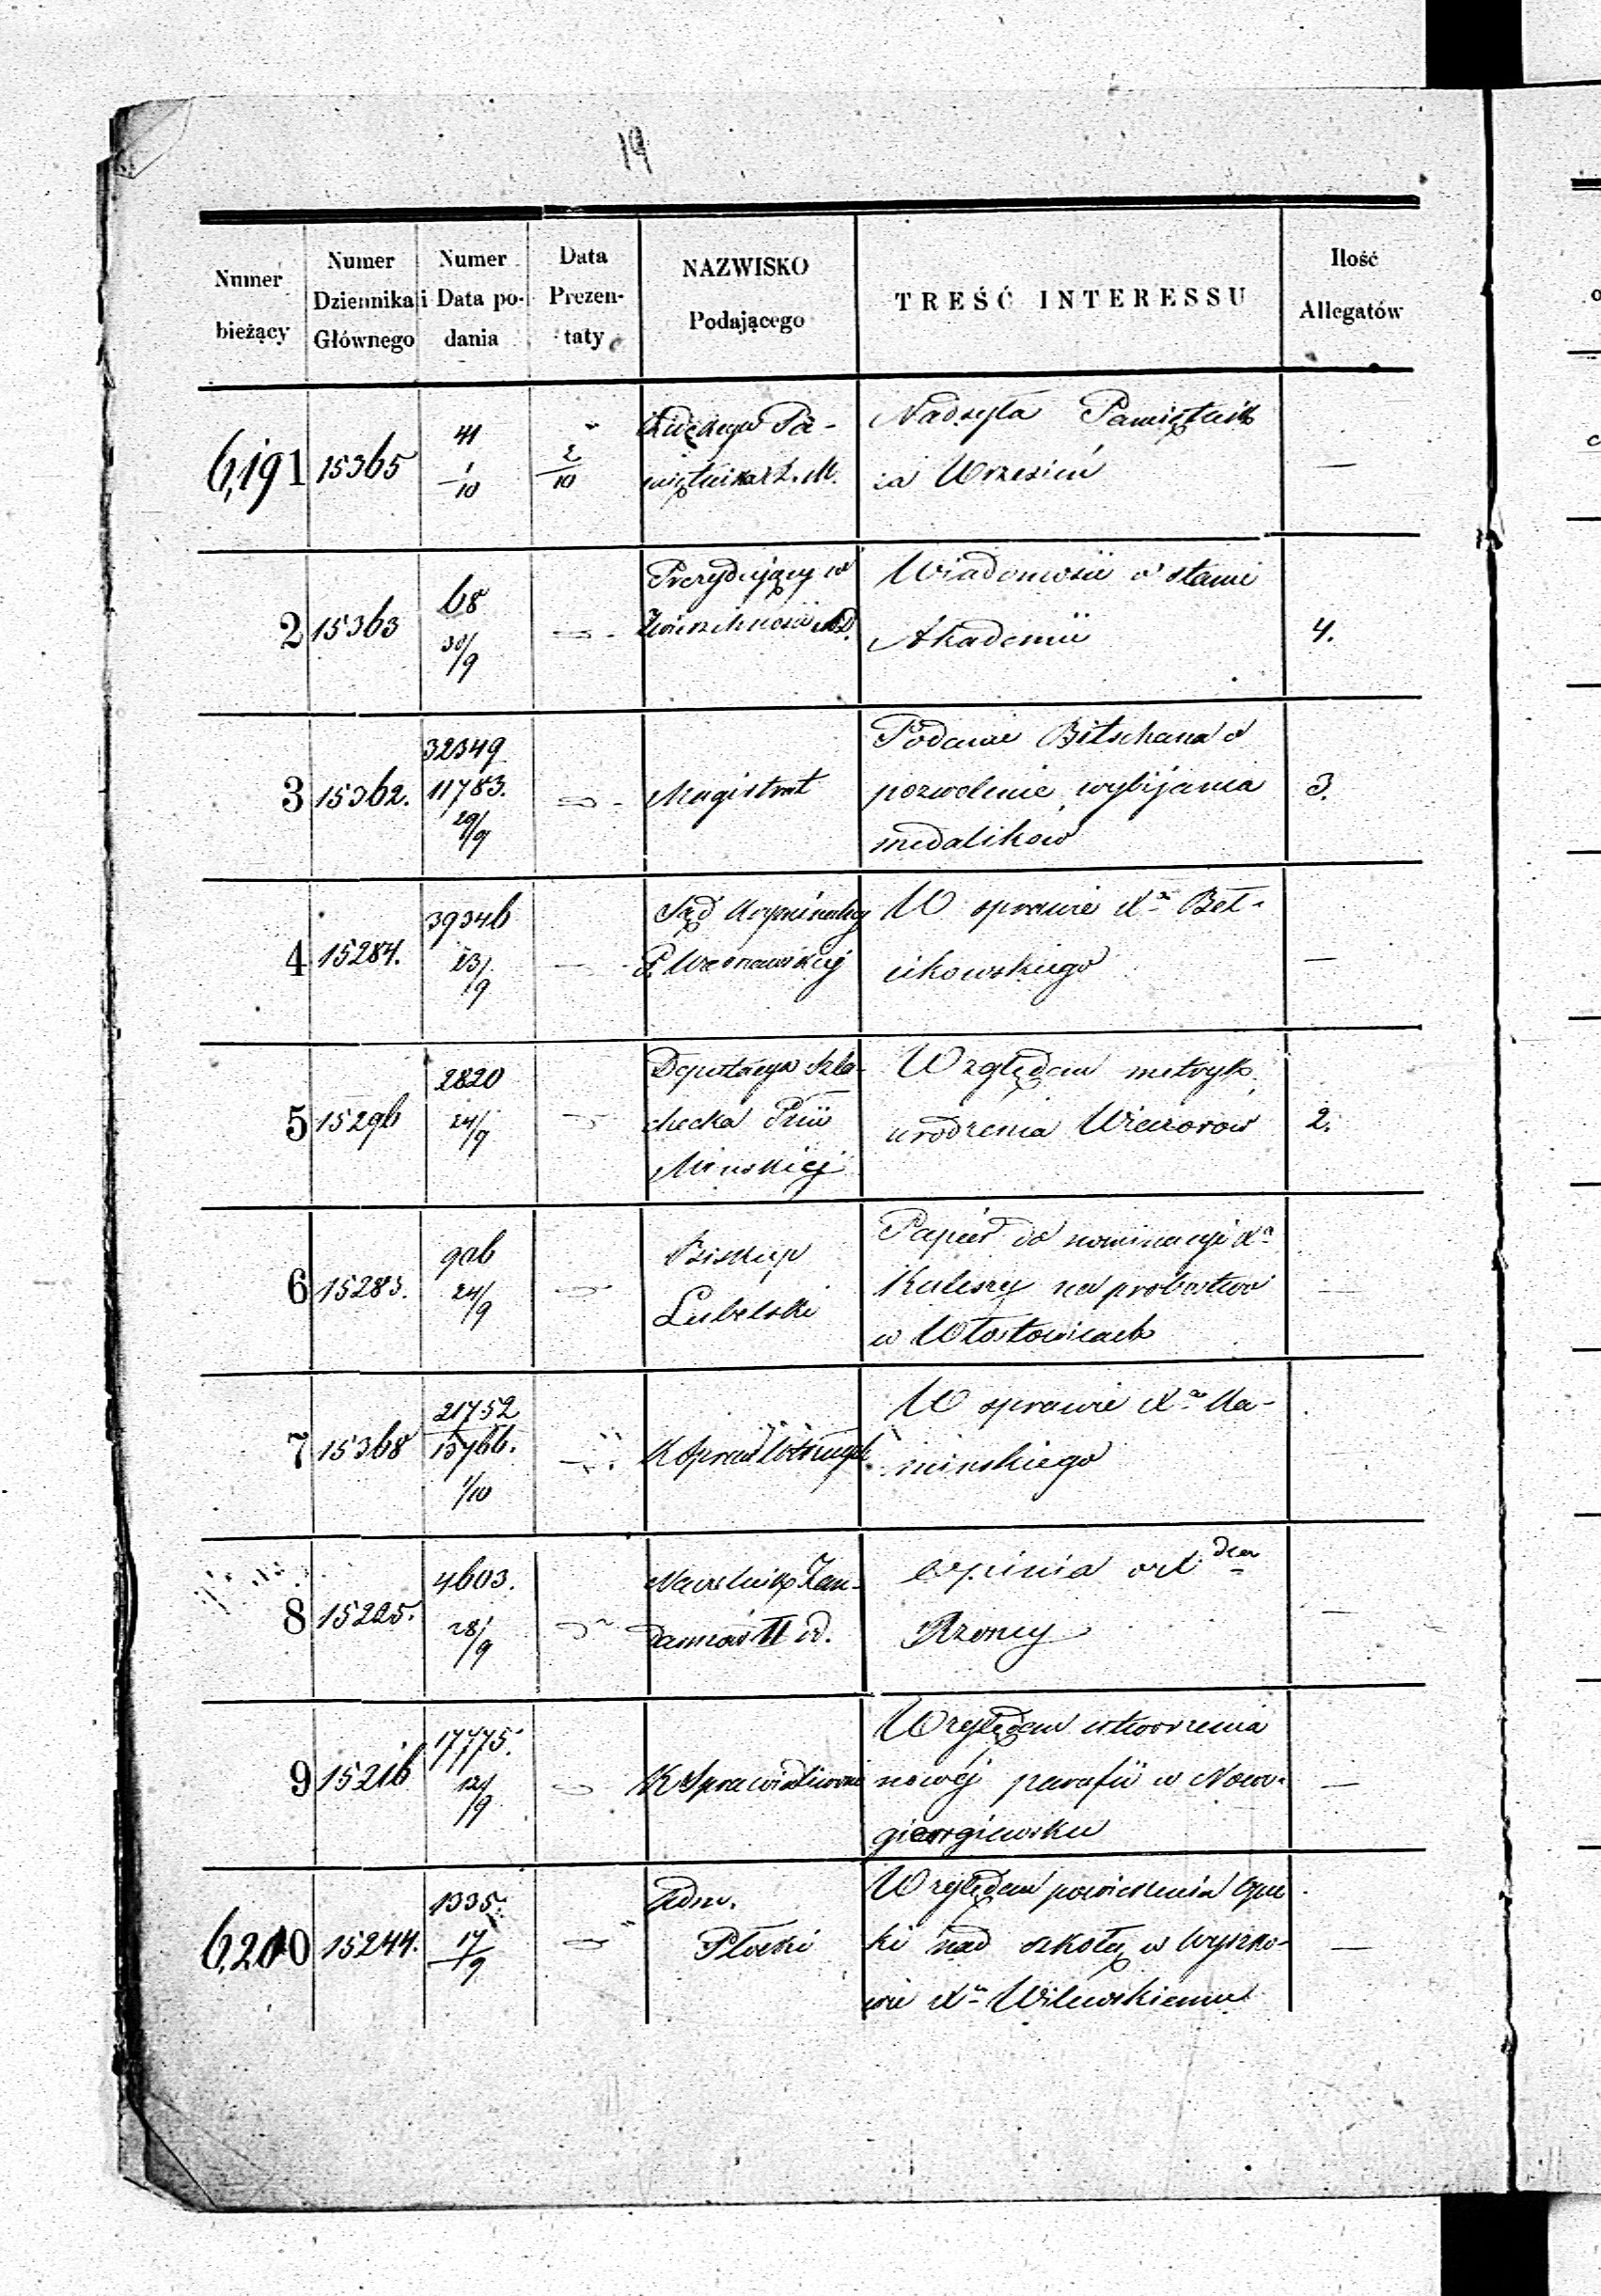 19
Numer bieżący
Numer Dziennika Głównego
Numer i Data podania
Data Prezentaty
NAZWISKO Podającego
TREŚĆ INTERESSU
Ilość Allegatów
6,191 15365 41 1/10 2/10
Nadsyła Pamiętnik
za Wrzesień
—
2 15363 68 30/9
Prezydujący w
Zwierzchności
Wiadomość o stanie
Akademii
4.
3 15362. 32349 11783. 29/9
Magistrat
Podanie Bitschana o
pozwolenie wybijania
medalików
3.
4 15284. 39346 23/9
Sąd Kryminalny
G. Warszawskiej
W sprawie Xa Beł-
cikowskiego
—
5 15296 2820 24/9
Deputacya Szla-
checka Gnii
Minskiej
Względem metryk
urodzenia Wieczorow
2.
6 15283. 906 24/9
Biskup
Lubelski
Papier do nominacyi Xa
Kuleszy na probostwo
w Włostowicach
—
7 15368 21752 13766. 1/10
W sprawie Xa Ka-
minskiego
8 15225. 4603. 28/9
Naczelnik Żan-
darmów II o.
opinia o X
Rzoncy
—
9 15216 17775. 12/9
K Sprawiedliwości
Względem utworzenia
nowéj parafii w Nowo-
gieorgiewsku
—
6,200 15244. 1335. 17/9
Adm.
Płocki
Względem powierzenia opie
ki nad szkołą w Wyszko-
wie Xu Wilewskiemu
—